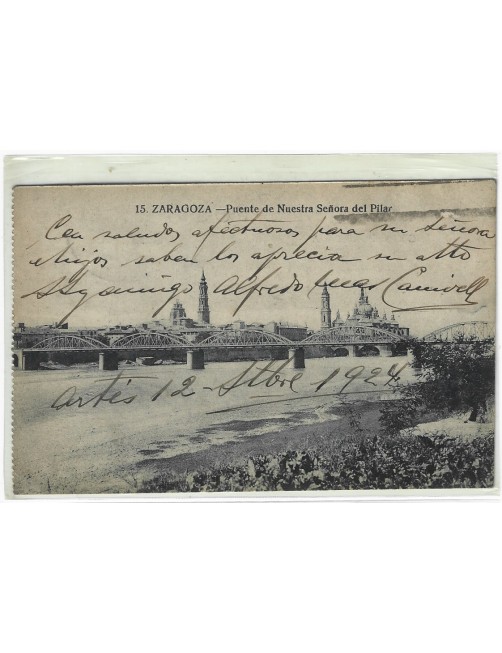 15. ZARAGOZA — Puente de Nuestra Señora del Pilar
Con saludos afectuosos para su señora
e hijos saben los aprecia su atto
y amigo Alfredo Canivell
Artés 12 - Stbre 1924